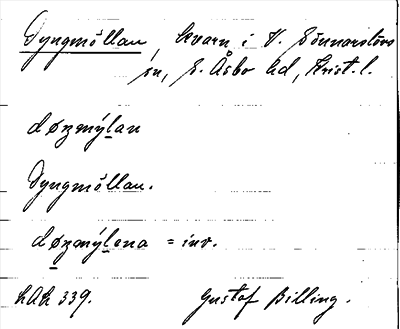 Dyngmöllan, kvarn i V. Sönnarslövs
sn, S. Åsbo hd, Krist. l.
døŋmýlan
Dyngmöllan.
døŋmýlena = inv.
LAL 339. Gustof Billing.